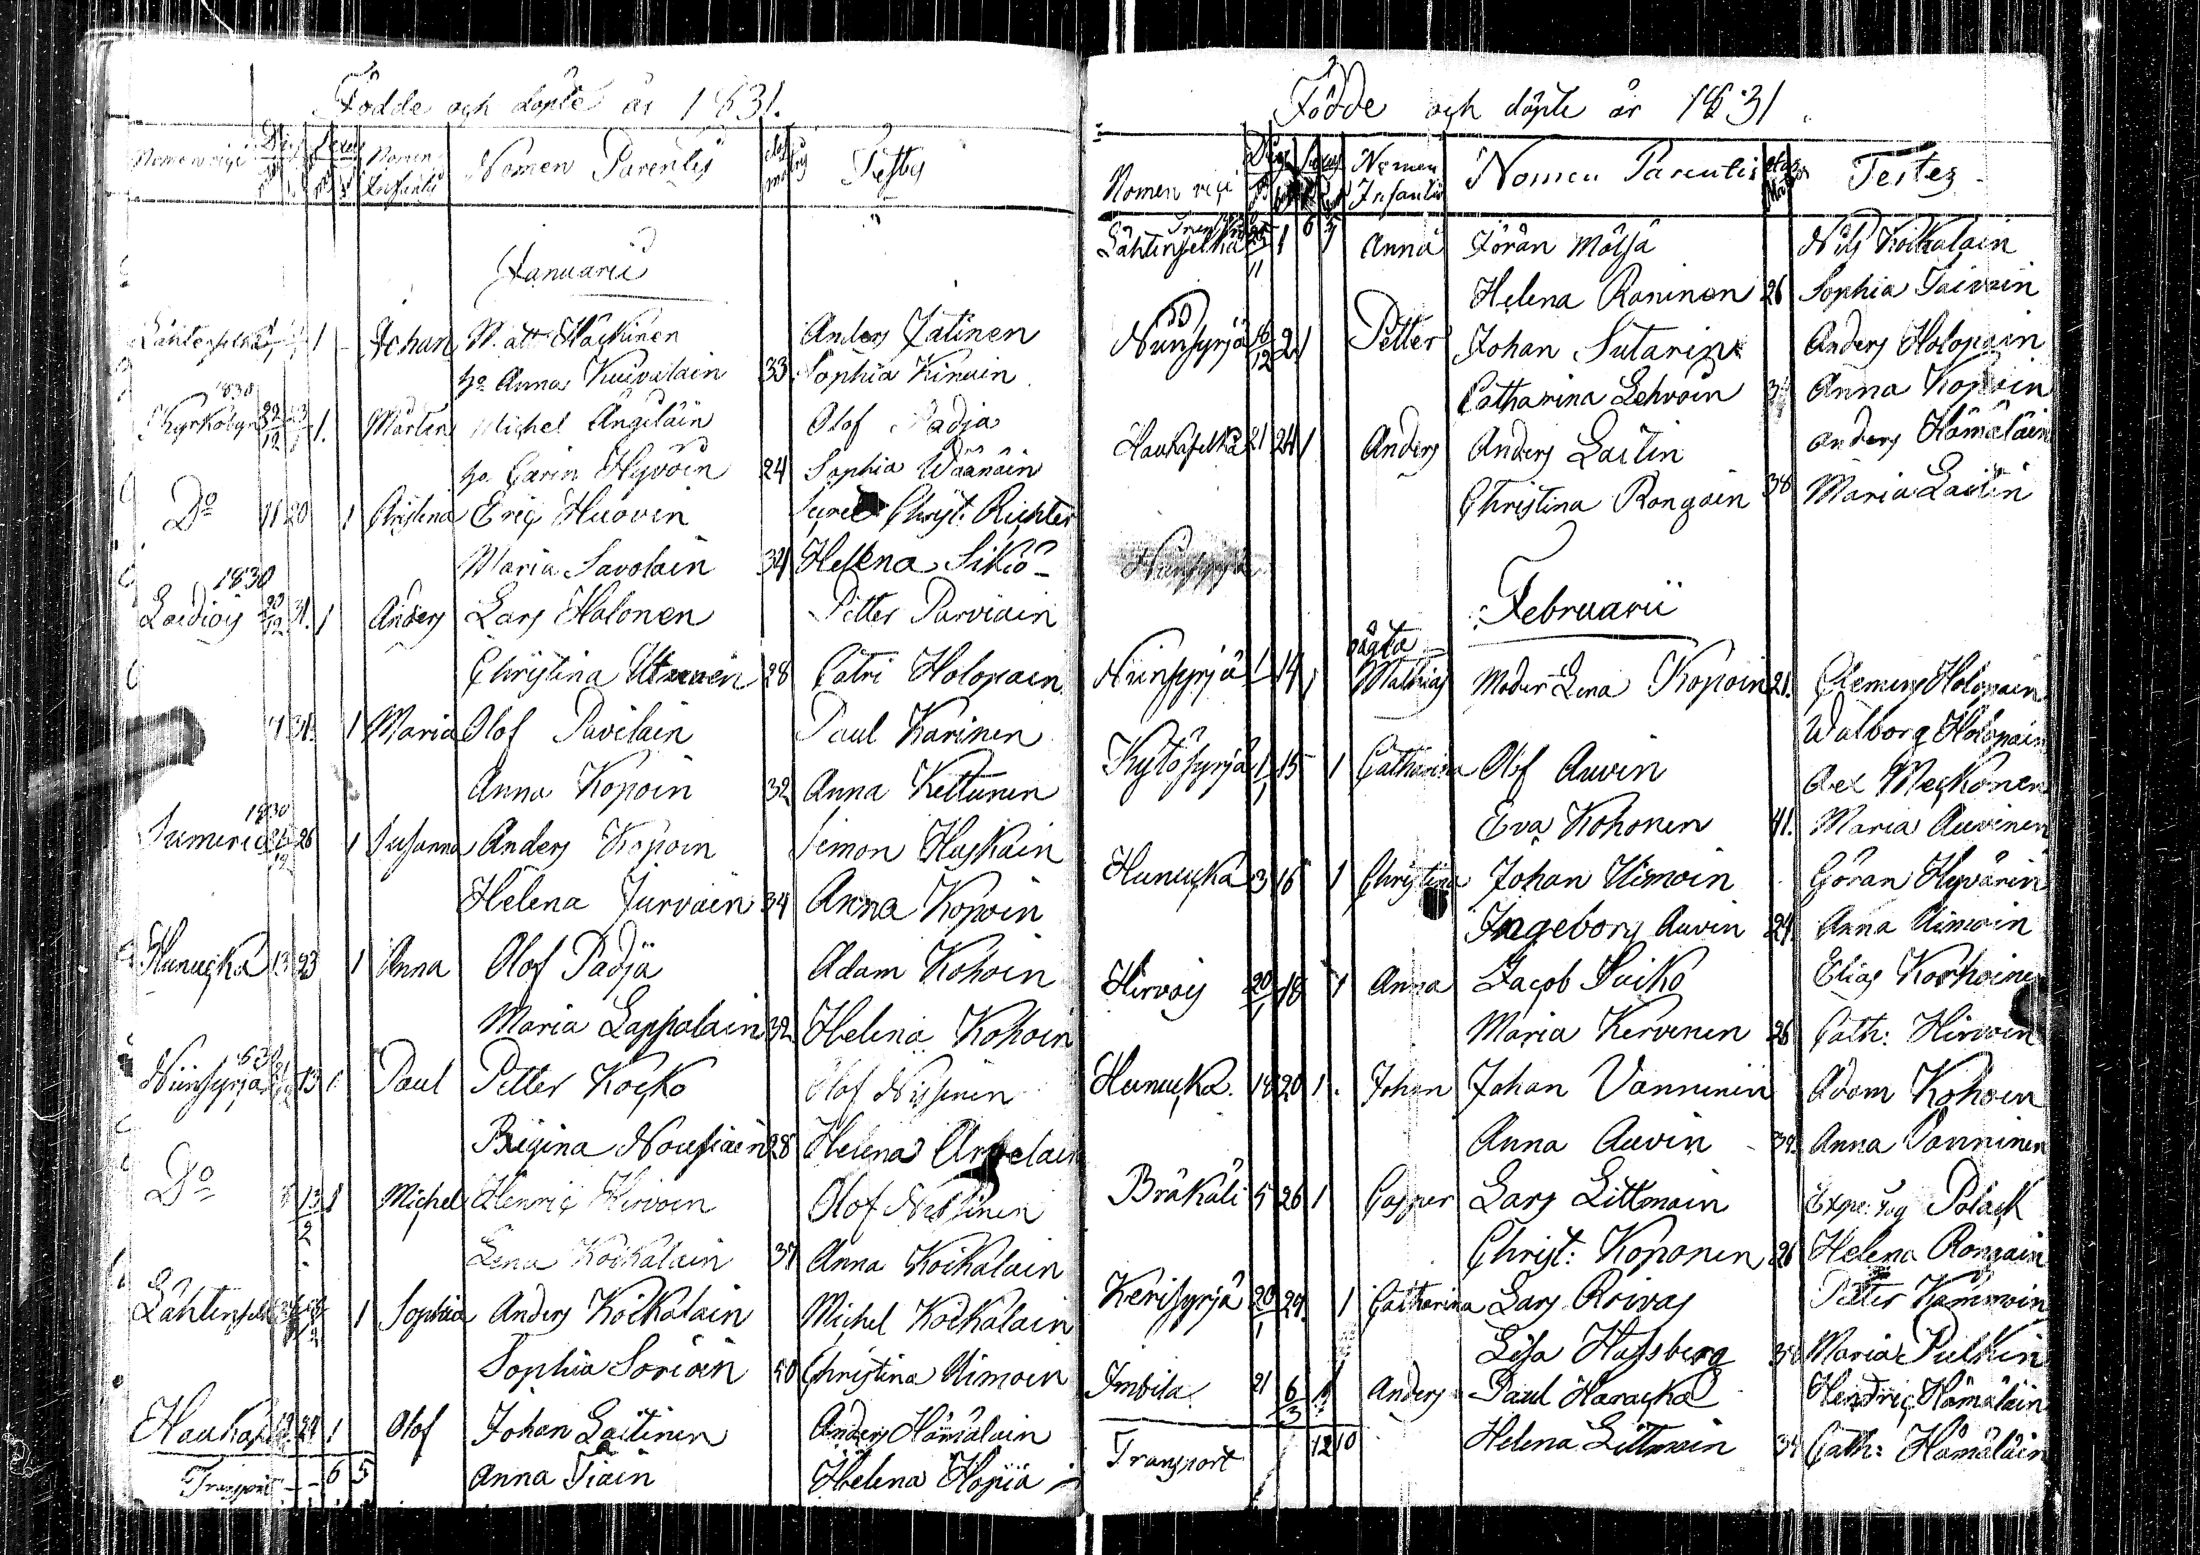 Födde och döpte år 1831.
Nomen vici Dies Sexus Nomen Infantis Nomen Parentis Testes
Januarii
1 Johan Matt Häckinen Anders Jätinen
ho Anna Kuivalain 33 Sophia Kinain
1830
Kyrkobyn 1. Mårten Michel Ängeläin Olof Padja
ho Carin Hyvöin 24 Sophia Wäänäin
Do 11 20 1 Christina Eric Huovin Christ: Richter
Maria Savolain 34 Helena Sikiö
1830
31. 1 Anders Lars Halonen Petter Parviain
Christina 28 Catri Holopain
31. 1 Maria Olof Pavilain Paul Karinen
Anna Kopoin 32 Anna Kettunen
1830
26 1 Susanna Anders Kopoin Simon Haskain
Helena Turvain 34 Anna Kopoin
Hunucka 13 23 1 Anna Olof Padja Adam Kohoin
Maria Lappalain 32 Helena Kohoin
Niinsyrjä 13 1 Paul Petter Kocko Olof Nissinen
Brigina Nousiain 28 Helena
Do 13/2 1 Michel Henric Hirvoin Olof Nissinen
Lena Koikalain 37 Anna Koikalain
1 Sophia Anders Koikalain Michel Koikalain
Sophia Sorioin 40 Christina Uimoin
24 1 Olof Johan Laitinen Anders Hämäläin
Transport - - 6 5 Anna Tiain Helena Hopia
Födde och döpte år 1831.
Nomen vici Dies Sexus Nomen Infantis Nomen Parentis Testes
6 5
Lähtinselkä 1 1 Anna Jöran Mölsä Nils Koikalain
Helena Roninen 26 Sophia Toivain
Niinsyrjä 16/12 2 1 Petter Johan Sutarin Anders Holopain
Catharina Lehvoin Anna Kopoin
Haukaselkä 21 24 1 Anders Anders Laitin Anders Hämäläin
Christina Rongain 38 Maria Laitin
Niinsyrjä
Februarii
oägta
Niinsyrjä 14 Mathias Moder Lena Kopoin 21. Clemens Holopain
Walborg Holopain
Kytösyrjä 15 1 Catharina Olof Auvin Meskonen
Eva Kohonen 41. Maria Auvinen
Hunucka 3 16 1 Christina Johan Uimoin Göran Hyvärin
Ingeborg Auvin 24. Anna Uimoin
20/1 18 1 Anna Jacob Saiko Elias Korhoinen
Maria Kervinen 26 Cath: Hirvoin
Hunucka. 18 20 1 Johan Johan Vanninen Adam Kohoin
Anna Auvin 34. Anna Vanninen
Bräkälä 5 26 1 Casper Lars Littmain Polack
Christ: Koponen 26 Helena Rongain
Kerisyrjä 20/1 27. 1 Catharina Lars Roivas Petter
Lisa Hassberg Maria Pulkin
Imbila 21 6/3 1 Anders Paul Haracka Hendric Hämäläin
Transport 12 10 Helena Littmain 34 Cath: Hämäläin